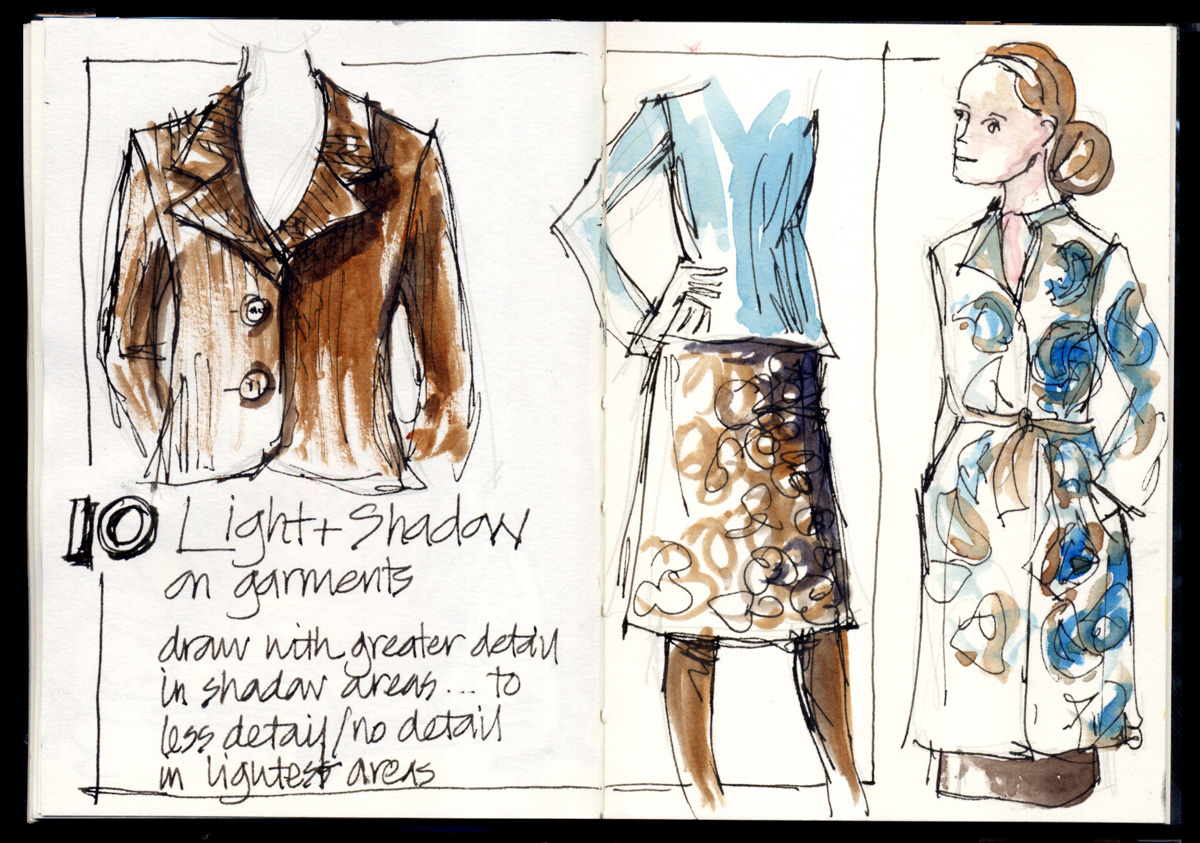 10 Light + Shadow
on garments
draw with greater detail
in shadow areas... to
less detail/no detail
in lightest areas